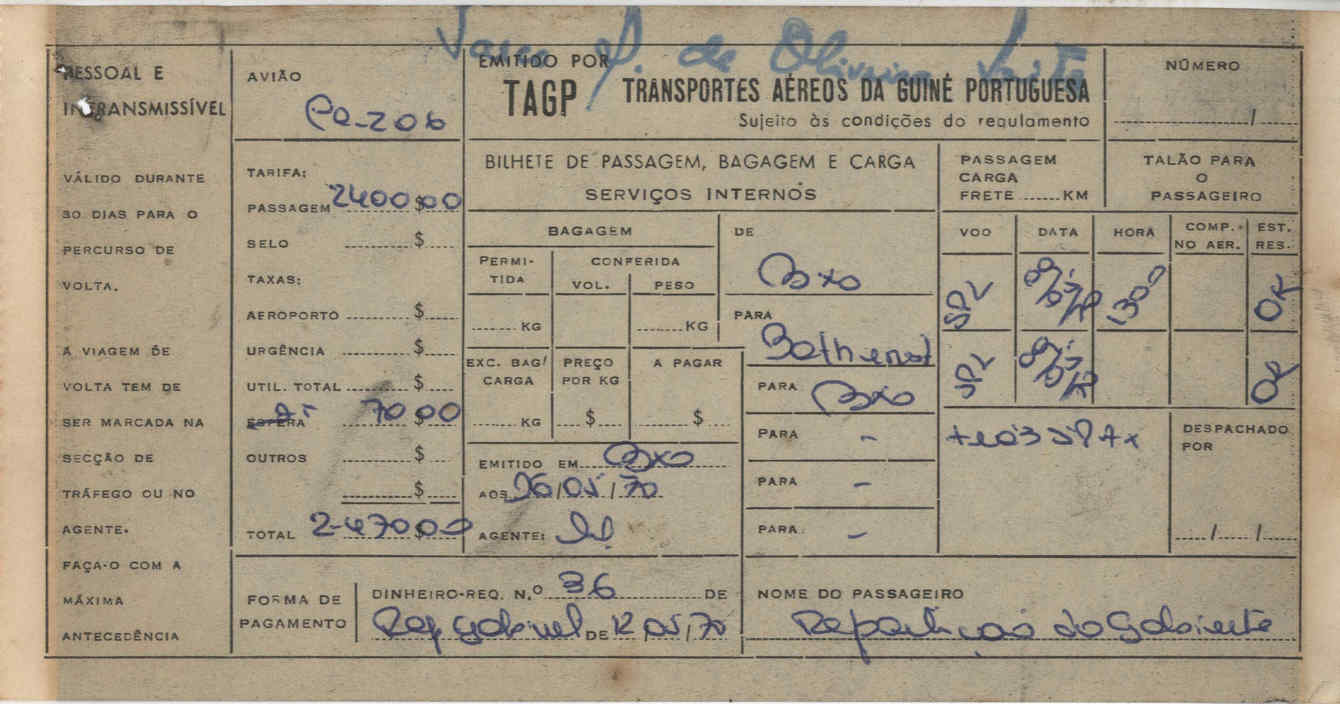 de Oliveira Leite
PESSOAL E
INTRANSMISSÍVEL
VÁLIDO DURANTE
30 DIAS PARA O
PERCURSO DE
VOLTA.
A VIAGEM DE
VOLTA TEM DE
SER MARCADA NA
SECÇÃO DE
TRÁFEGO OU NO
AGENTE.
FAÇA-O COM A
MÁXIMA
ANTECEDÊNCIA
AVIÃO
TARIFA:
PASSAGEM 2400$00
SELO $
TAXAS:
AEROPORTO $
URGÊNCIA $
UTIL. TOTAL $
ESPERA 70$00
OUTROS $
$
TOTAL 2470$00
EMITIDO POR
TAGP TRANSPORTES AÉREOS DA GUINÉ PORTUGUESA
Sujeito às condições do regulamento
NÚMERO
/
BILHETE DE PASSAGEM, BAGAGEM E CARGA
SERVIÇOS INTERNOS
PASSAGEM
CARGA
FRETE ...... KM
TALÃO PARA
O
PASSAGEIRO
BAGAGEM
PERMI-
TIDA
CONFERIDA
VOL. PESO
KG KG
EXC. BAG/
CARGA
PREÇO
POR KG
A PAGAR
KG $ $
EMITIDO EM Bxo
AOS 26/05/70
AGENTE:
DE
Bxo
PARA
Bathurst
PARA Bxo
PARA -
PARA -
PARA -
VOO DATA HORA COMP. NO AER. EST. RES.
SPL 1300 OK
SPL OK
DESPACHADO
POR
/ /
FORMA DE
PAGAMENTO
DINHEIRO-REQ. N.º 36 DE
Rep Gabinet DE 12/05/70
NOME DO PASSAGEIRO
Repartição do Gabinete